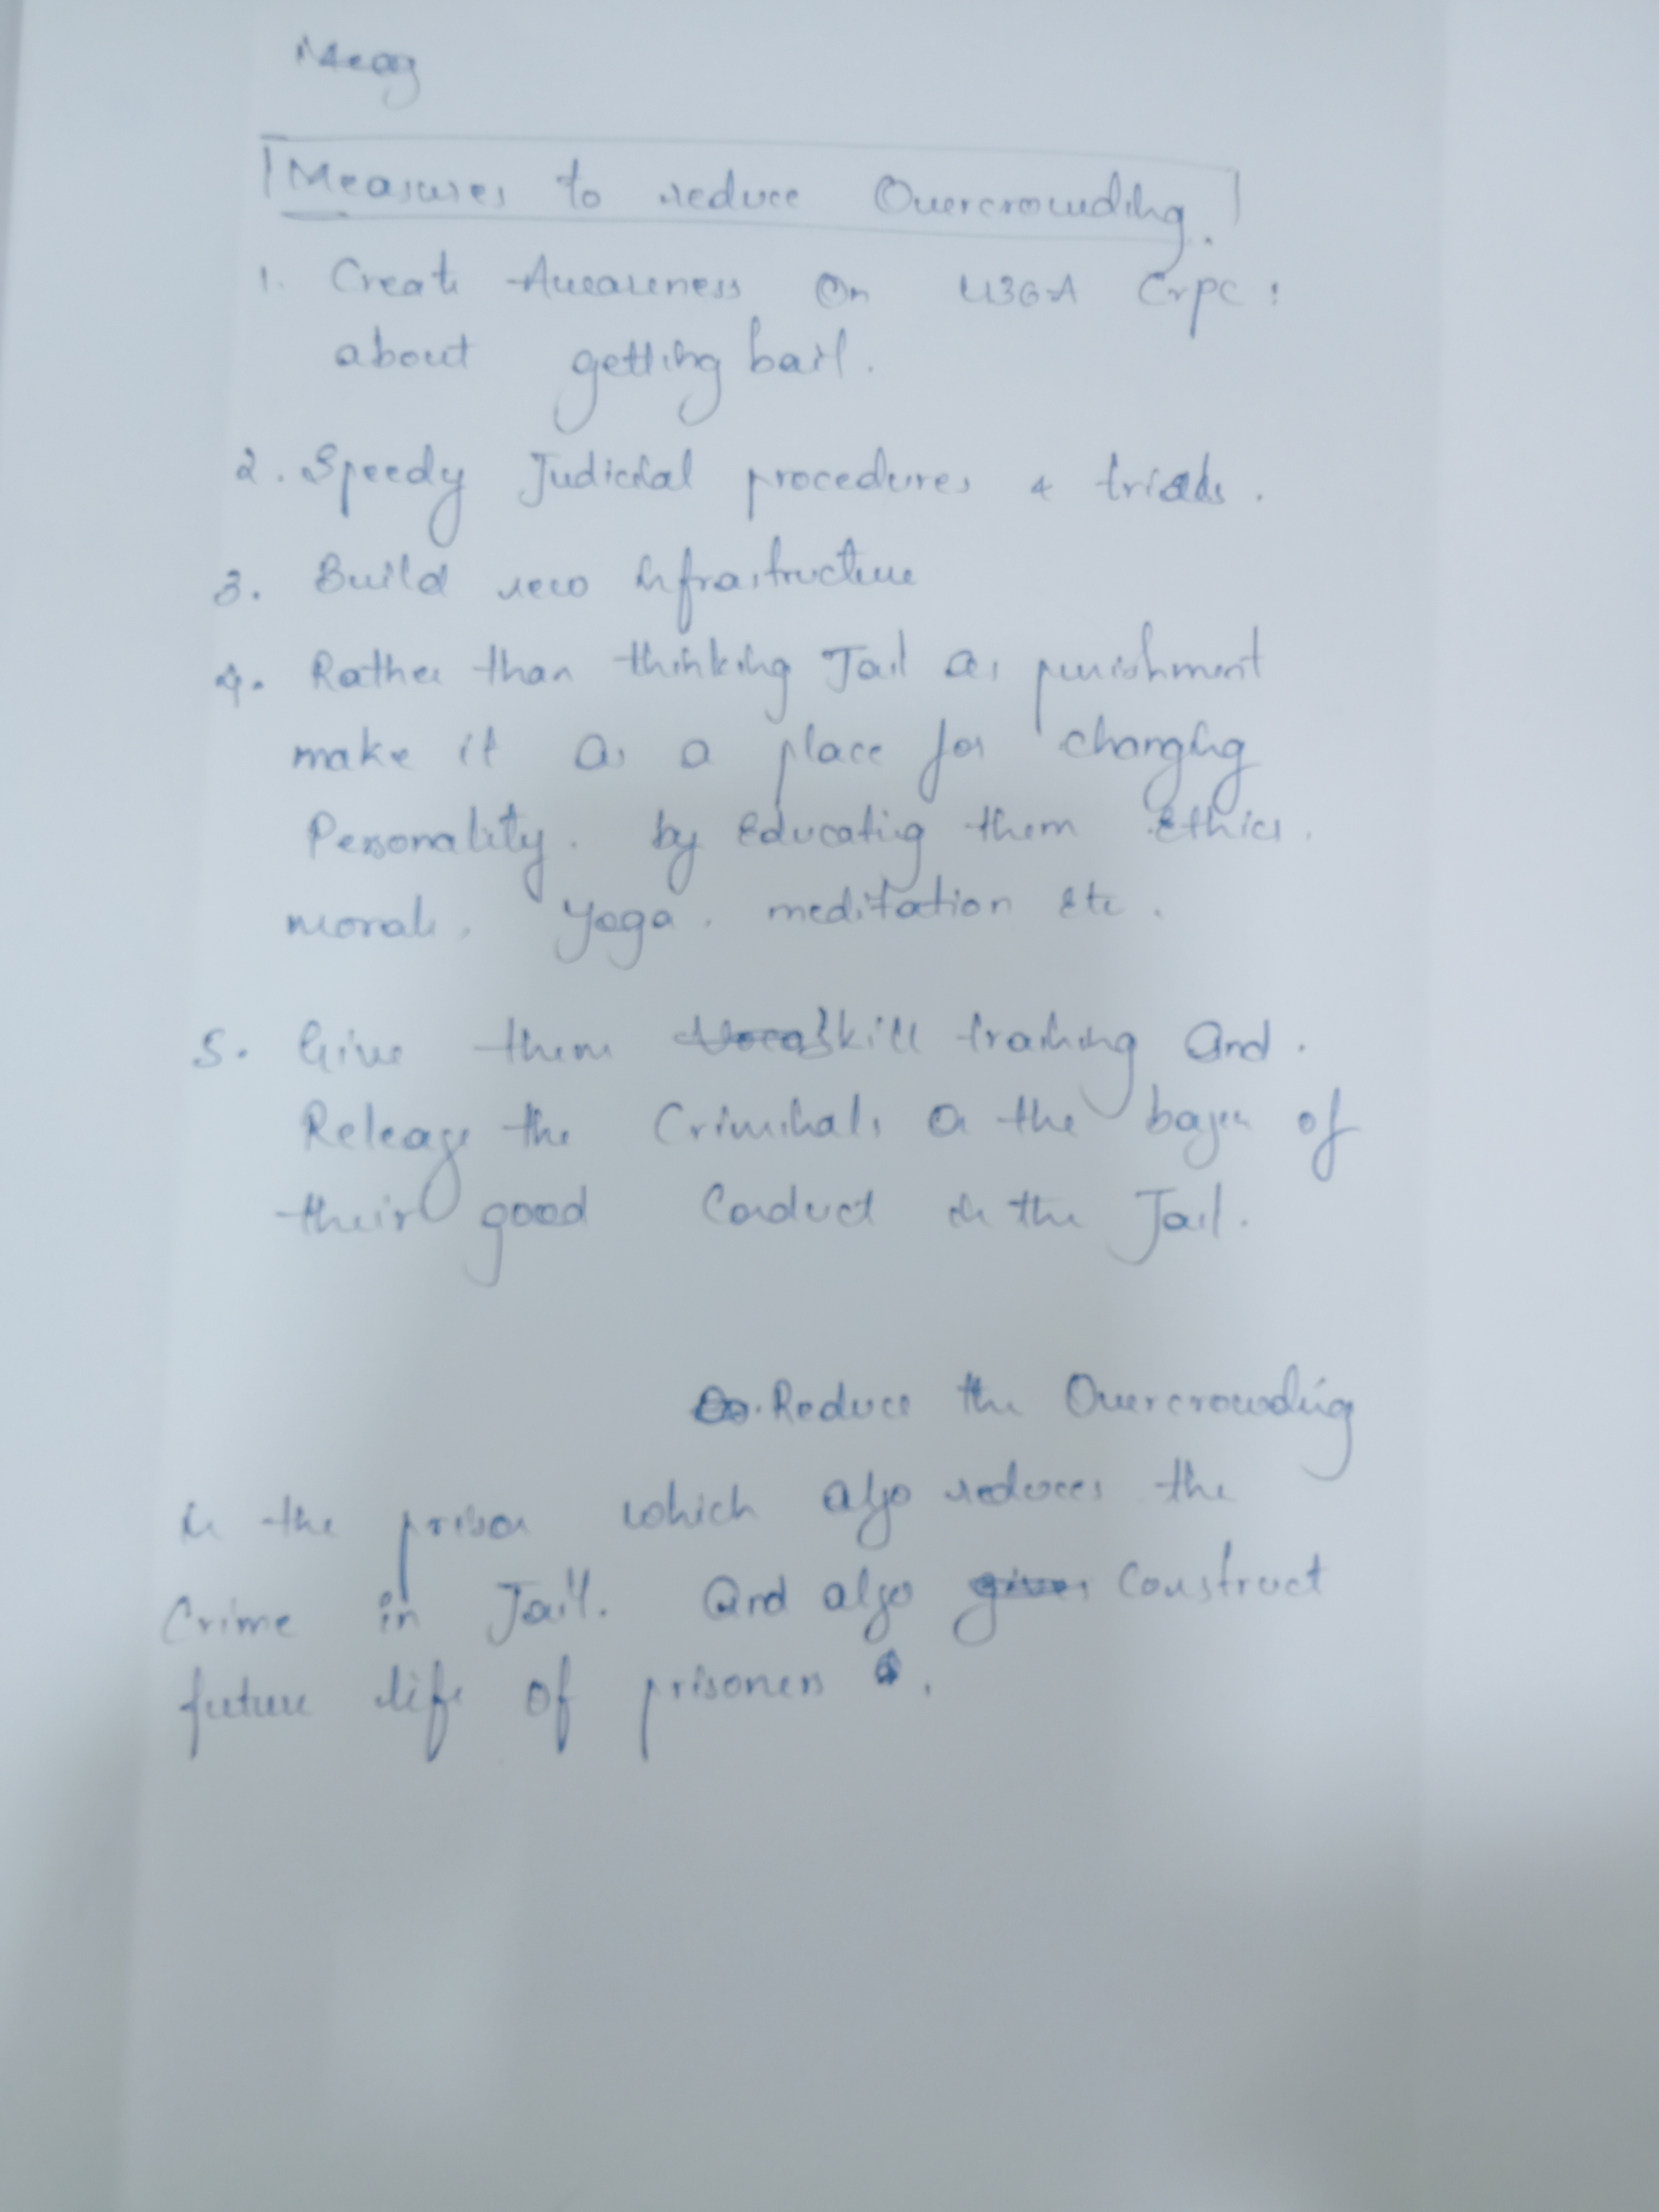 Meas
Measures to reduce Overcrowding.
1. Create Awareness On 436A Crpc :
about getting bail.
2. Speedy Judicial procedures & trials.
3. Build new infrastructure
4. Rather than thinking Jail as punishment
make it as a place for changing
Personality. by Educating them Ethics.
morals, yoga, meditation etc.
5. Give them skill training And.
Release the Criminals on the bases of
their good Conduct in the Jail.
Reduce the Overcrowding
in the prison which also reduces the
Crime in Jail. And also gives Construct
future life of prisoners.